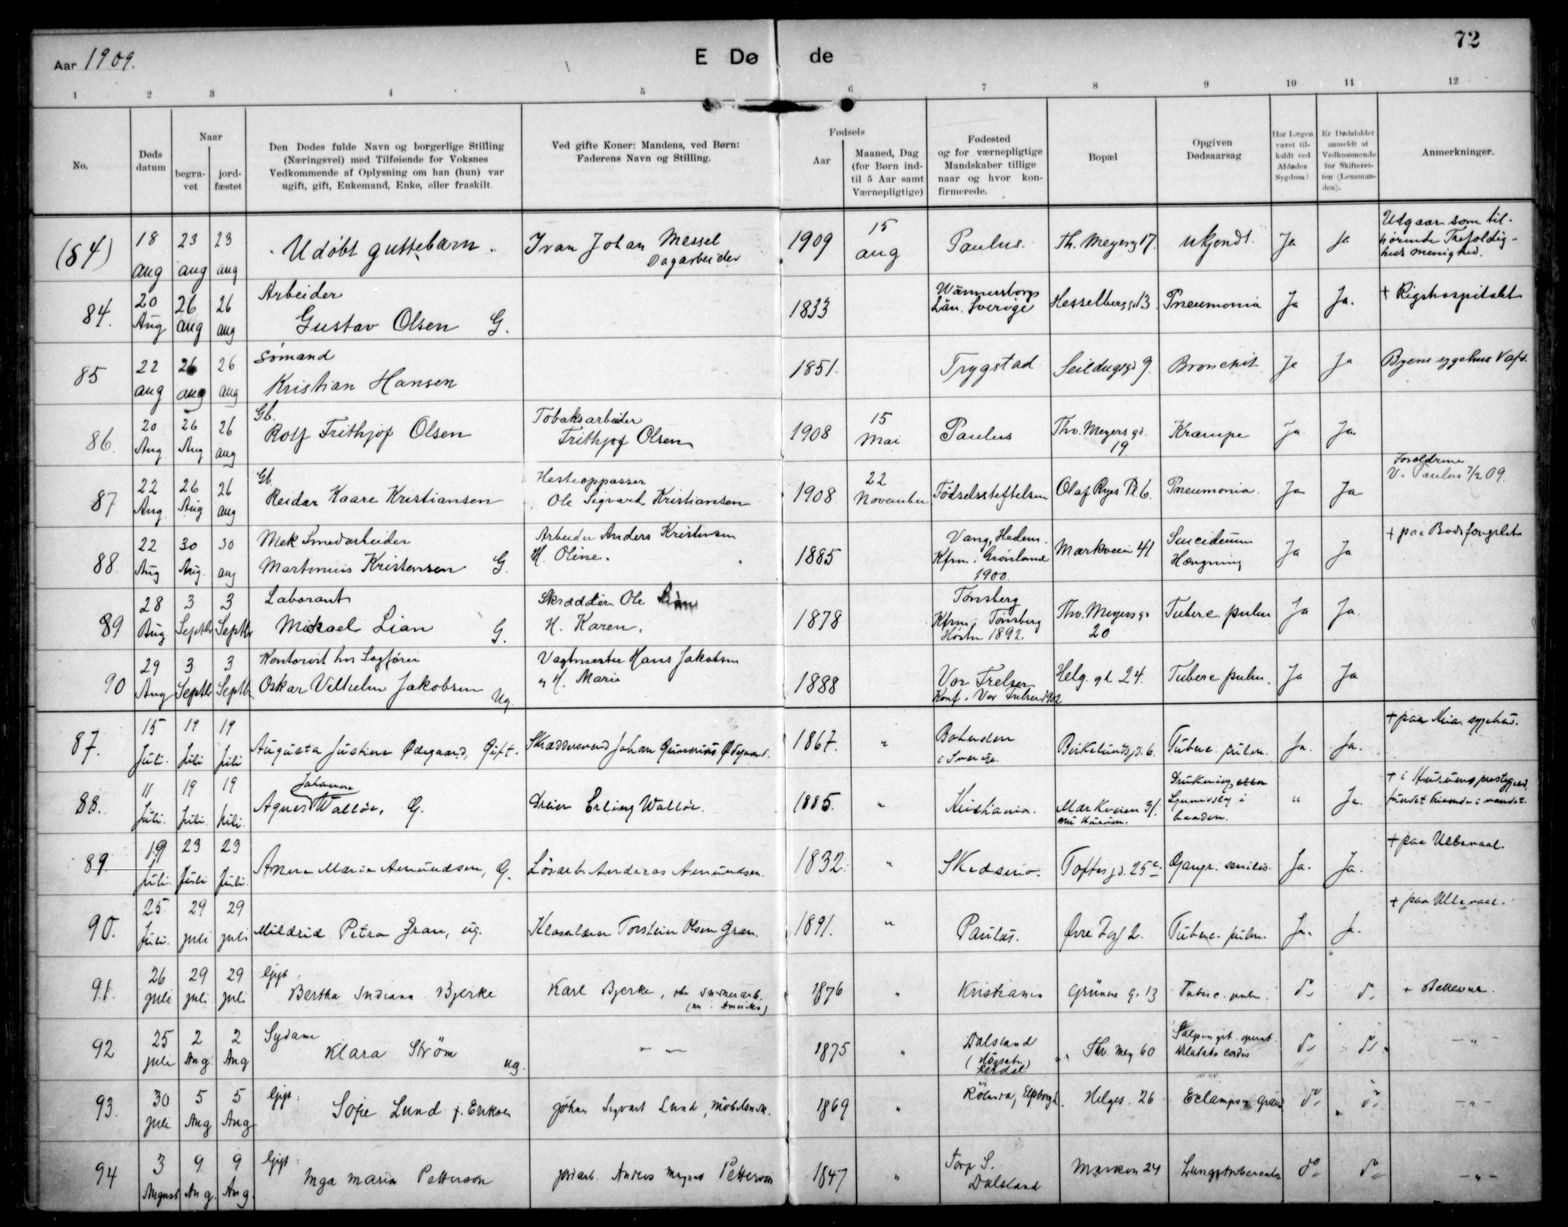 72
Aar 1909.
E Døde
1 2 3 4 5 6 7 8 9 10 11 12
No.
Døds datum
Naar
begravet
jordfæstet
Den Dødes fulde Navn og borgerlige Stilling (Næringsvei) med Tilføiende for Voksnes Vedkommende af Oplysning om han (hun) var ugift, gift, Enkemand, Enke, eller fraskilt
Ved gifte Koner: Mandens, ved Børn: Faderens Navn og Stilling.
Fødsels
Aar
Maaned, Dag (for Børn indtil 5 Aar samt Værnepligtige)
Fødested og for værnepligtige Mandskaber tillige naar og hvor konfirmerede.
Bopæl
Opgiven Dødsaarsag
Har Lægen været tilkaldt ved Afdødes Sygdom?
Er Dødsfaldet anmeldt af Vedkommende for Skifteretten (Lensmanden).
Anmerkninger.
(84) 18 aug 23 aug 23 aug Udøbt guttebarn. Ivan Johan Messel Dagarbeider 1909 15 aug Paulus. Th. Meyersg 17. ukjendt Ja Ja Udgaar som tilhørende Trefoldigheds menighed.
84. 20 Aug 26 aug 26 aug Arbeider Gustav Olsen G. 1833 Wännersborgs Län. Sverige Hesselbergsgd 13 Pneumonia Ja Ja. + Rigshospitalet
85 22 aug 26 aug 26 aug Sømand Kristian Hansen 1851. Trygstad Seildugsgd 9. Bronchit Ja Ja Byens sygehus V afd.
86. 20 Aug 26 Aug 26 aug Gb. Rolf Frithjof Olsen Tobaksarbeider Frithjof Olsen 1908 15 Mai Paulus Thv. Meyers gd. 19 Krampe Ja Ja
87 22 Aug 26 Aug 26 aug Gb Reidar Kaare Kristiansen Hesteoppasser Ole Sigvard Kristiansen 1908 22 November Fødselsstiftelsen Olaf Ryes Pl 6. Pneumonia. Ja Ja Forældrene V. Paulus 7/2 09.
88 22 Aug 30 Aug. 30 aug Mek Smedarbeider Martinius Kristensen G. Arbeider Anders Kristensen H. Oline. 1885 Vang, Hedem. Kfrm. Grønland 1900 Markveien 41 Suicidium Hængning Ja Ja + paa Bodsfængslet
89 28 Aug 3 Septbr 3 Septbr Laborant Mikael Lian G. Skrædder Ole Lian H. Karen. 1878 Tønsberg Kfrm. Tønsberg Høsten 1892 Thv. Meyersgd 20 Tuberc pulm Ja Ja.
90 29 Aug 3 Septbr 3 Septbr Kontorist hos Sagfører Oskar Vilhelm Jakobsen Ug Vagtmester Hans Jakobsen og H. Marie 1888 Vor Frelser Konf. Vor Frelser 1902 Helg. gd 24. Tuberc pulm. Ja Ja
87. 15 Juli. 19 Juli 19 Juli Augusta Justine Ødegaard, Gift. Skræddersvend Johan Ødegaard. 1867. " Bohuslen i Sverige. Birkelundsgd. 6. Tuberc. pulm. Ja. Ja. + paa sygehus.
88. 11 Juli. 19 Juli. 19 juli. Agnes Johanne Walløe, G. Dreier Erling Walløe. 1885. " Kristiania. Markveien 31. Drukning i " Ja.
89. 19 Juli. 23 Juli 23 Juli. Anna Maria Amundsen, G. Løsarb Andreas Amundsen. 1832. " Skedsmo. Toftesgd. 25 c Gangr. senilis. Ja. Ja. + paa Ullevaal.
90. 25 Juli. 29 juli 29 juli Mildrid Petra Gran, ug. Torstein Olsen Gran. 1891. " Paulus. Øvre 2. Tuberc. pulm. Ja. J. + paa Ullevaal.
91. 26 juli 29 juli 29 juli Gift: Bertha Indiana Bjerke Karl Bjerke, 1876 " Kristiania Grüners g. 13 Tuberc. pulm. do do +
92 25 juli 2 Aug. 2 Aug Sydame Klara Strøm ug. — — 1875 " Dalsland Thv Mey 60 do do — " —
93. 30 juli 5 Aug 5 Aug Gift: Sofie Lund f. Eriksen Johan Sigvart Lund, 1869 " Helges. 26 do " do — " —
94 3 August 9 Aug. 9 Aug. Gift: Inga Maria Petterson Anders Magnus Petterson 1847 " Torp S. Dalsland Markvn 24 do do — " —